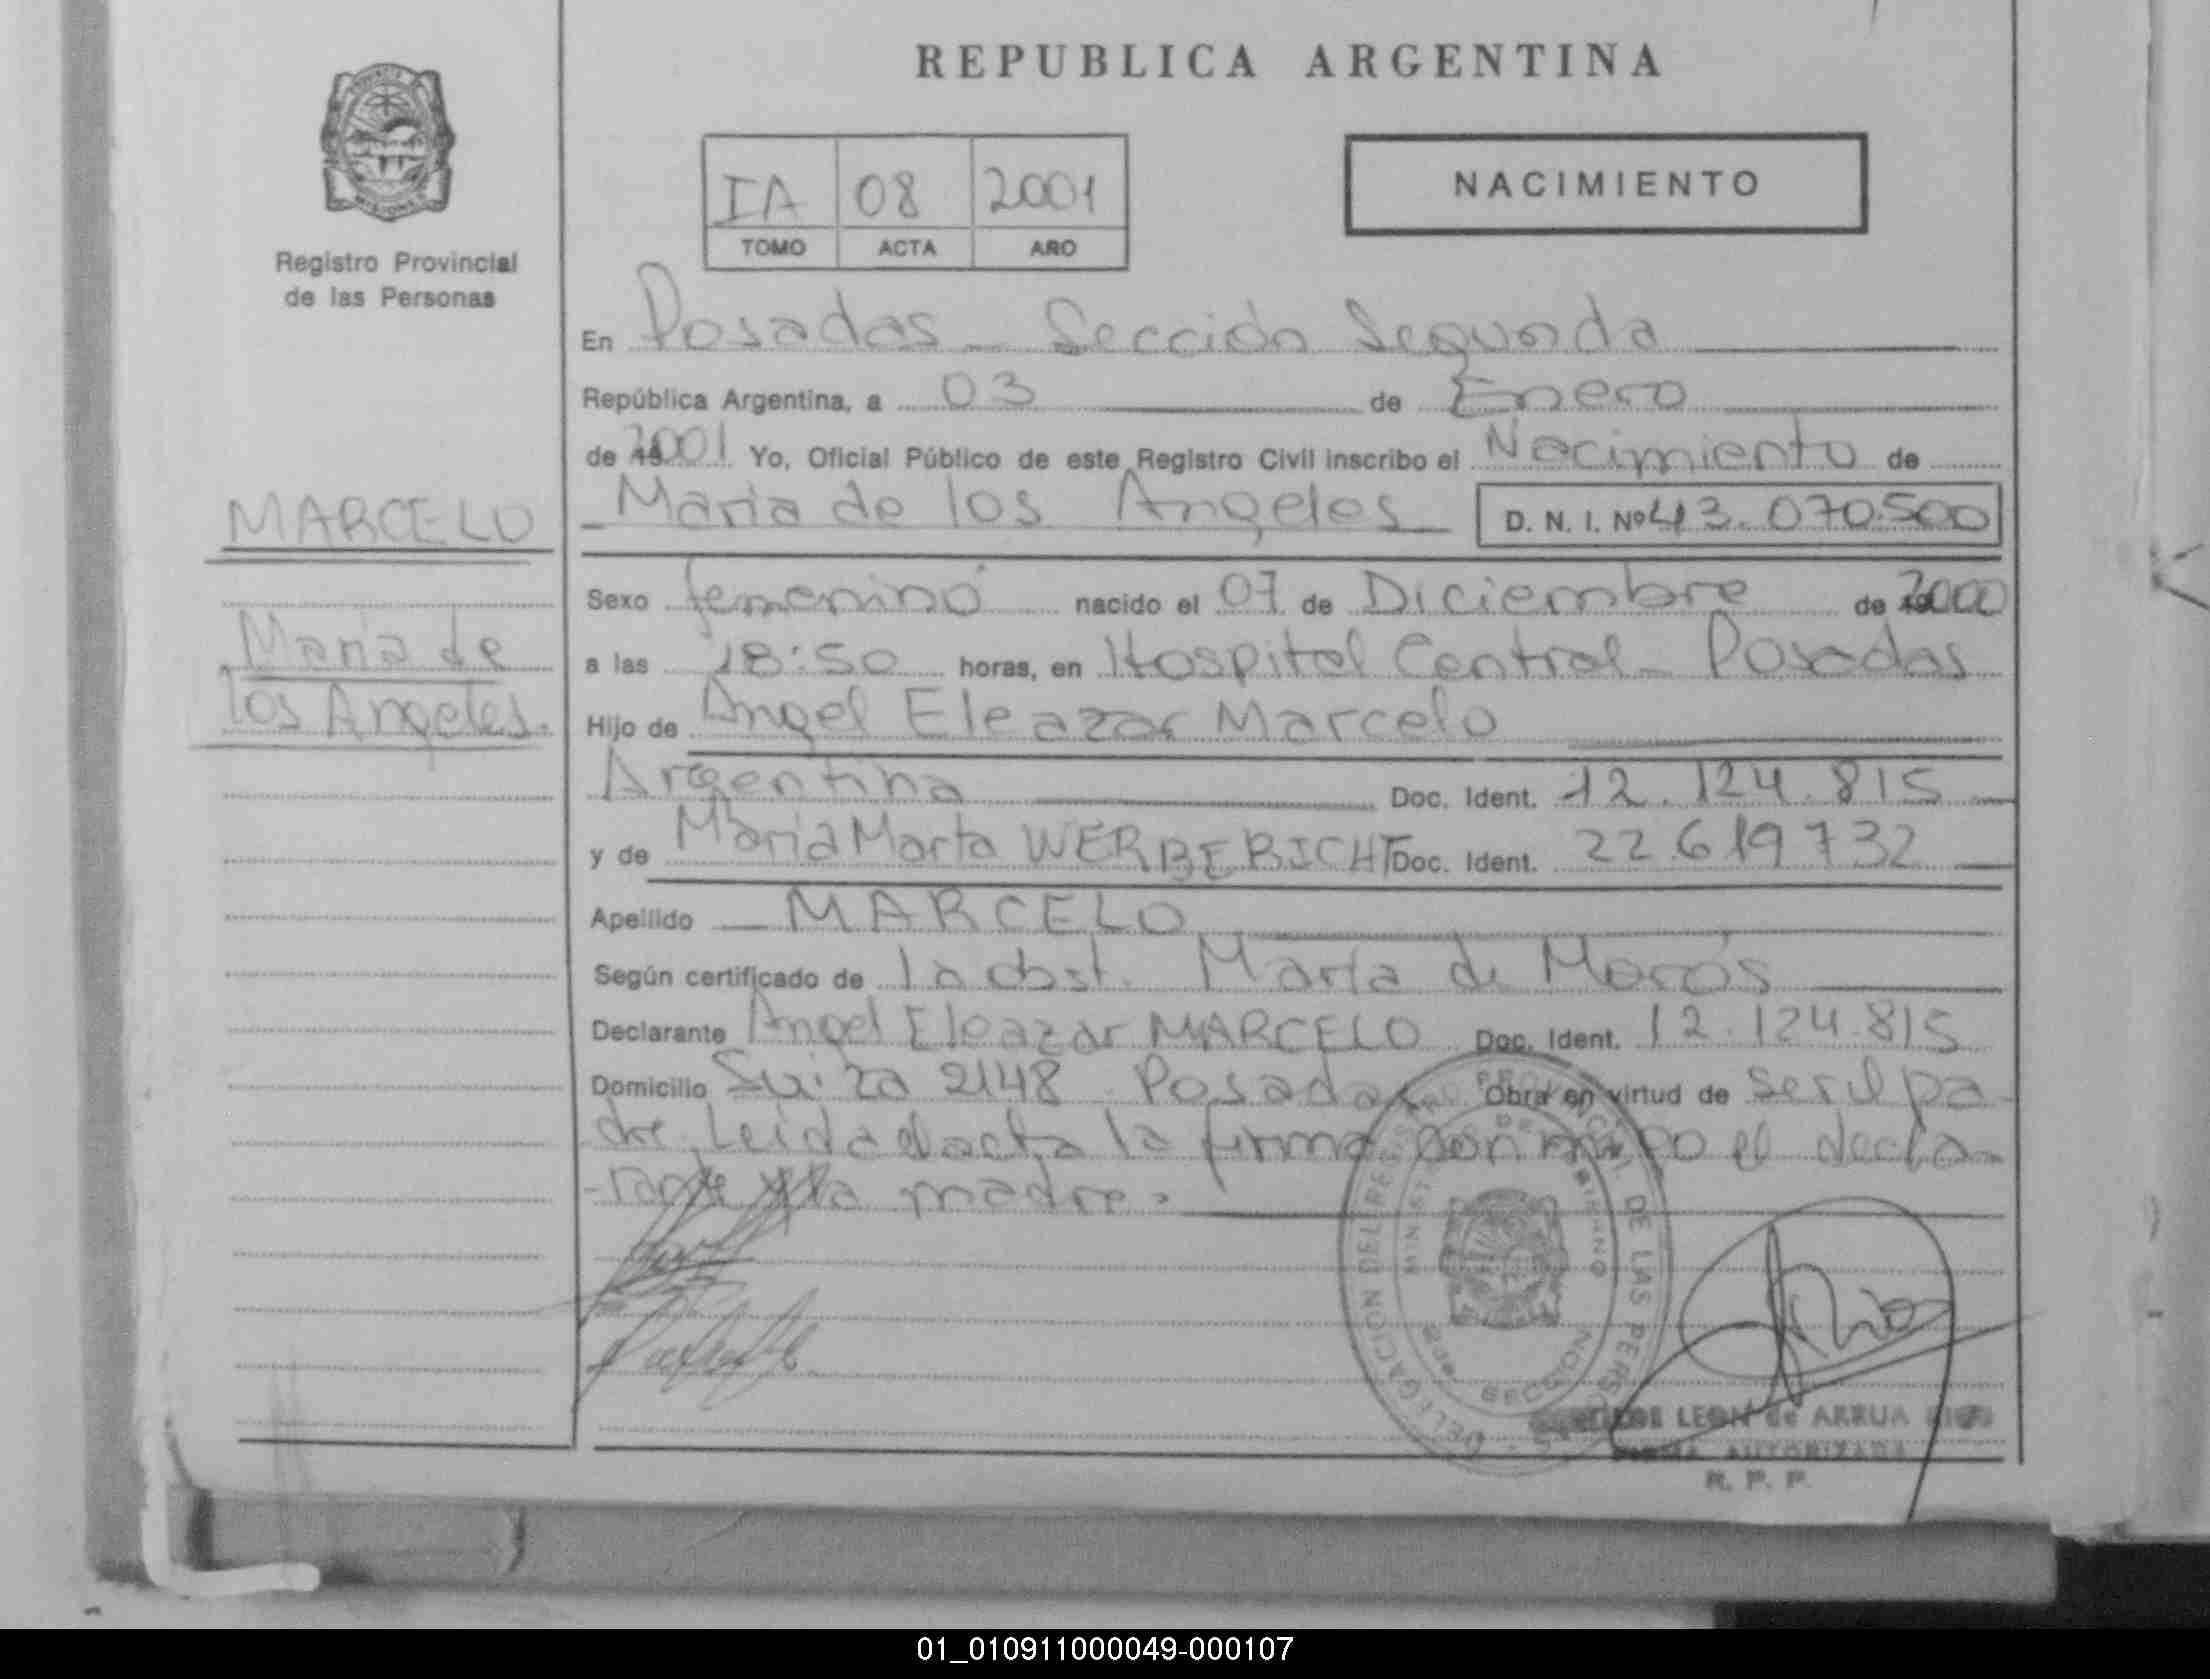 REPUBLICA ARGENTINA
IA 08 2001
TOMO ACTA AÑO
NACIMIENTO
Registro Provincial
de las Personas
MARCELO
Maria de
los Angeles.
En Posadas - Sección Segunda
República Argentina, a 03 de Enero
de 2001 Yo, Oficial Público de este Registro Civil inscribo el Nacimiento de
Maria de los Angeles D. N. I. Nº 43.070.500
Sexo femenino nacido el 07 de Diciembre de 2000
a las 18:50 horas, en Hospital Central - Posadas
Hijo de Angel Eleazar Marcelo
Argentina Doc. Ident. 12.124.815
y de Maria Marta WERBERICHT Doc. Ident. 22.619732
Apellido MARCELO
Según certificado de la obst. Marta de
Declarante Angel Eleazar MARCELO Doc. Ident. 12.124.815
Domicilio Suiza 2148 Posadas Obra en virtud de ser el pa-
dre. Leida el acta la firma conmigo el decla-
-rante y la madre.
DELEGACION DEL REGISTRO PROVINCIAL DE LAS PERSONAS
MINISTERIO DE GOBIERNO
SECCION
LEON de ARRUA
FIRMA AUTORIZADA
R. P. P.
01_010911000049-000107